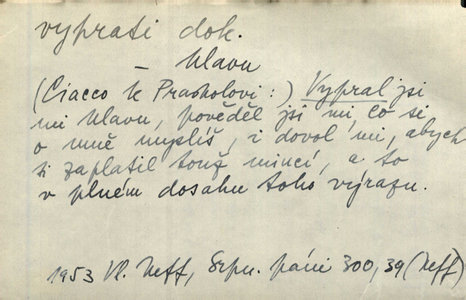 vyprati dok.
– hlavu
(Ciacco k Prasholovi:) Vypral jsi
mi hlavu, pověděl jsi mi, co si
o mně myslíš, i dovol mi, abych
ti zaplatil touž mincí, a to
v plném dosahu toho výrazu.
1953 Vl. Neff, Srpn. páni 300,39 (Neff)